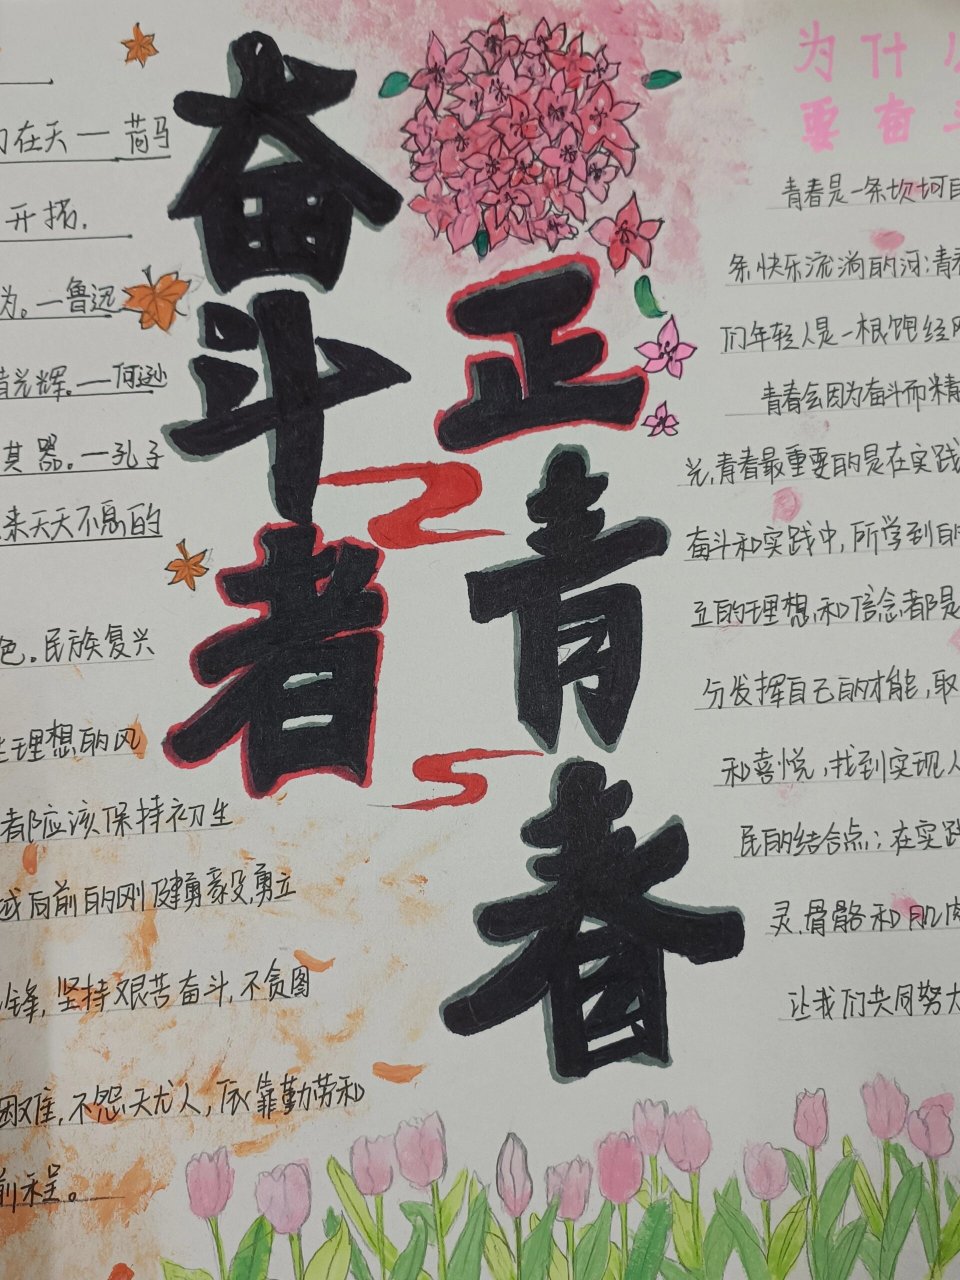 在天一荷马
开拓.
为。一鲁迅
光辉.一何逊
其器.一孔子
来天天不息的
色。民族复兴
理想的风
者都应该保持初生
越向前的刚健勇毅,勇立
锋,坚持艰苦奋斗,不贪图
困难,不怨天尤人,依靠勤劳和
前程。
奋斗者
正青春
为什么
要奋斗
青春是一条坎坷
条快乐流淌的河;青春
们年轻人是一根饱经风
青春会因为奋斗而精
光,青春最重要的是在实践
奋斗和实践中,所学到的
立的理想和信念都是
分发挥自己的才能,取
和喜悦,找到实现人
民的结合点;在实践
灵,骨骼和肌肉
让我们共同努力